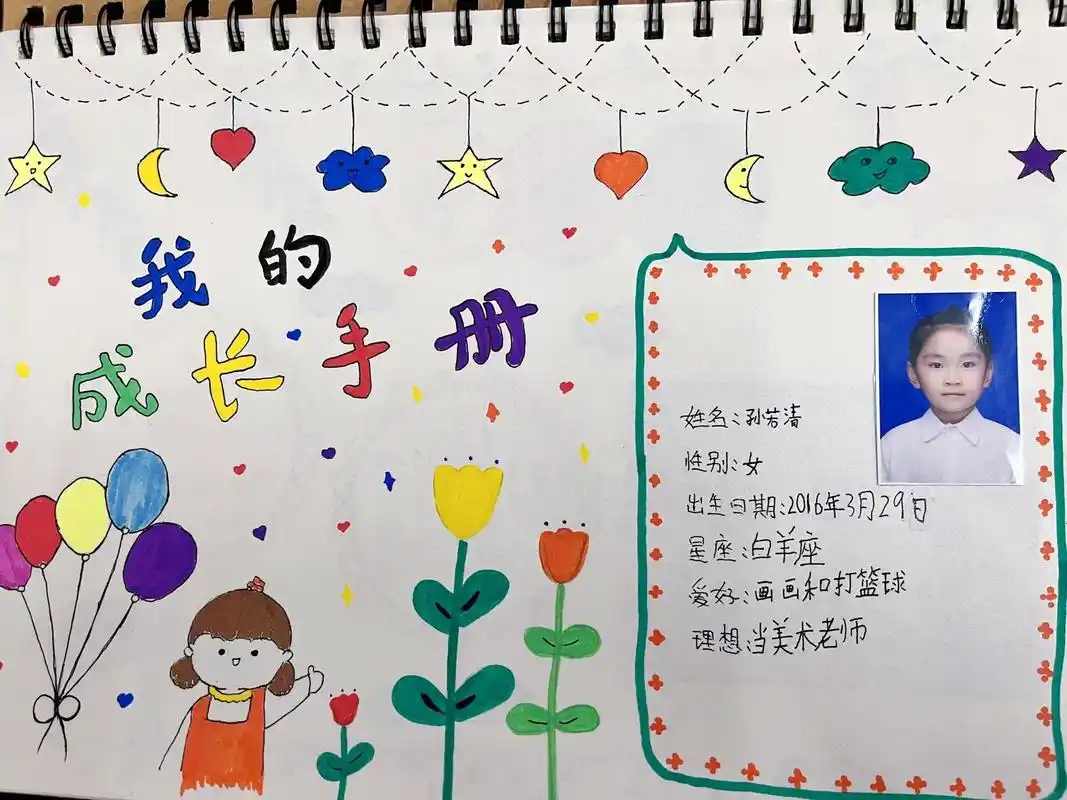 我的
成长手册
姓名:孙若清
性别:女
出生日期:2016年3月29日
星座:白羊座
爱好:画画和打篮球
理想:当美术老师